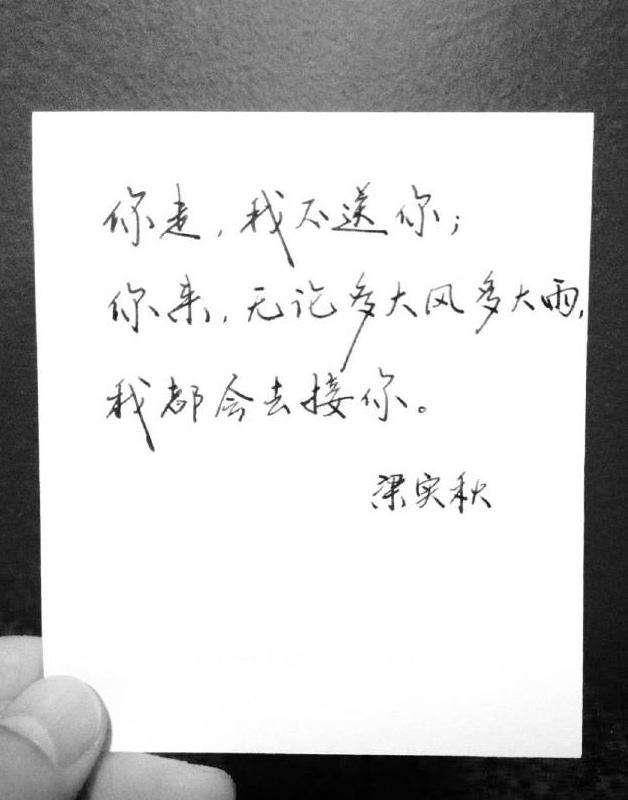 你走，我不送你；
你来，无论多大风多大雨，
我都会去接你。
梁实秋